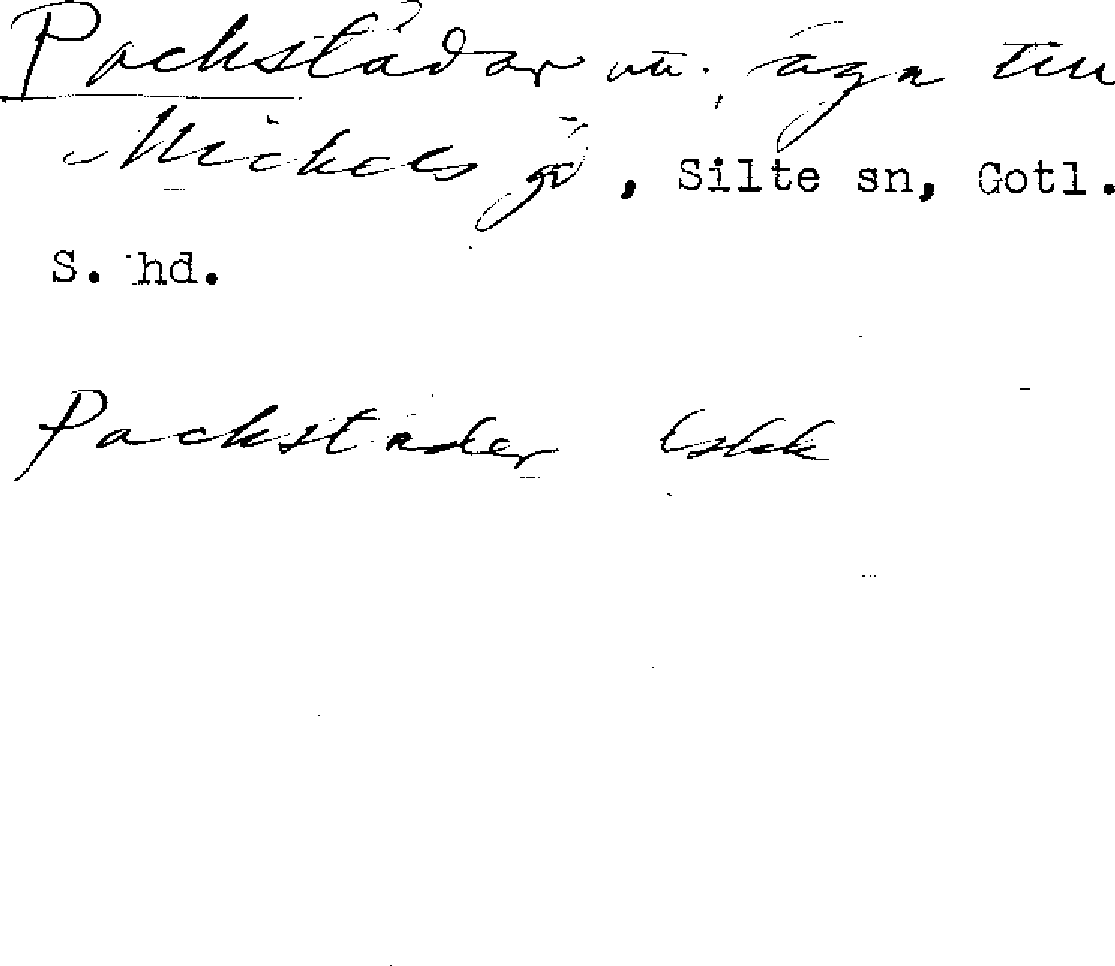 Packstädar , äga till
Mickels gd, Silte sn, Gotl.
S. hd.
Packstäder